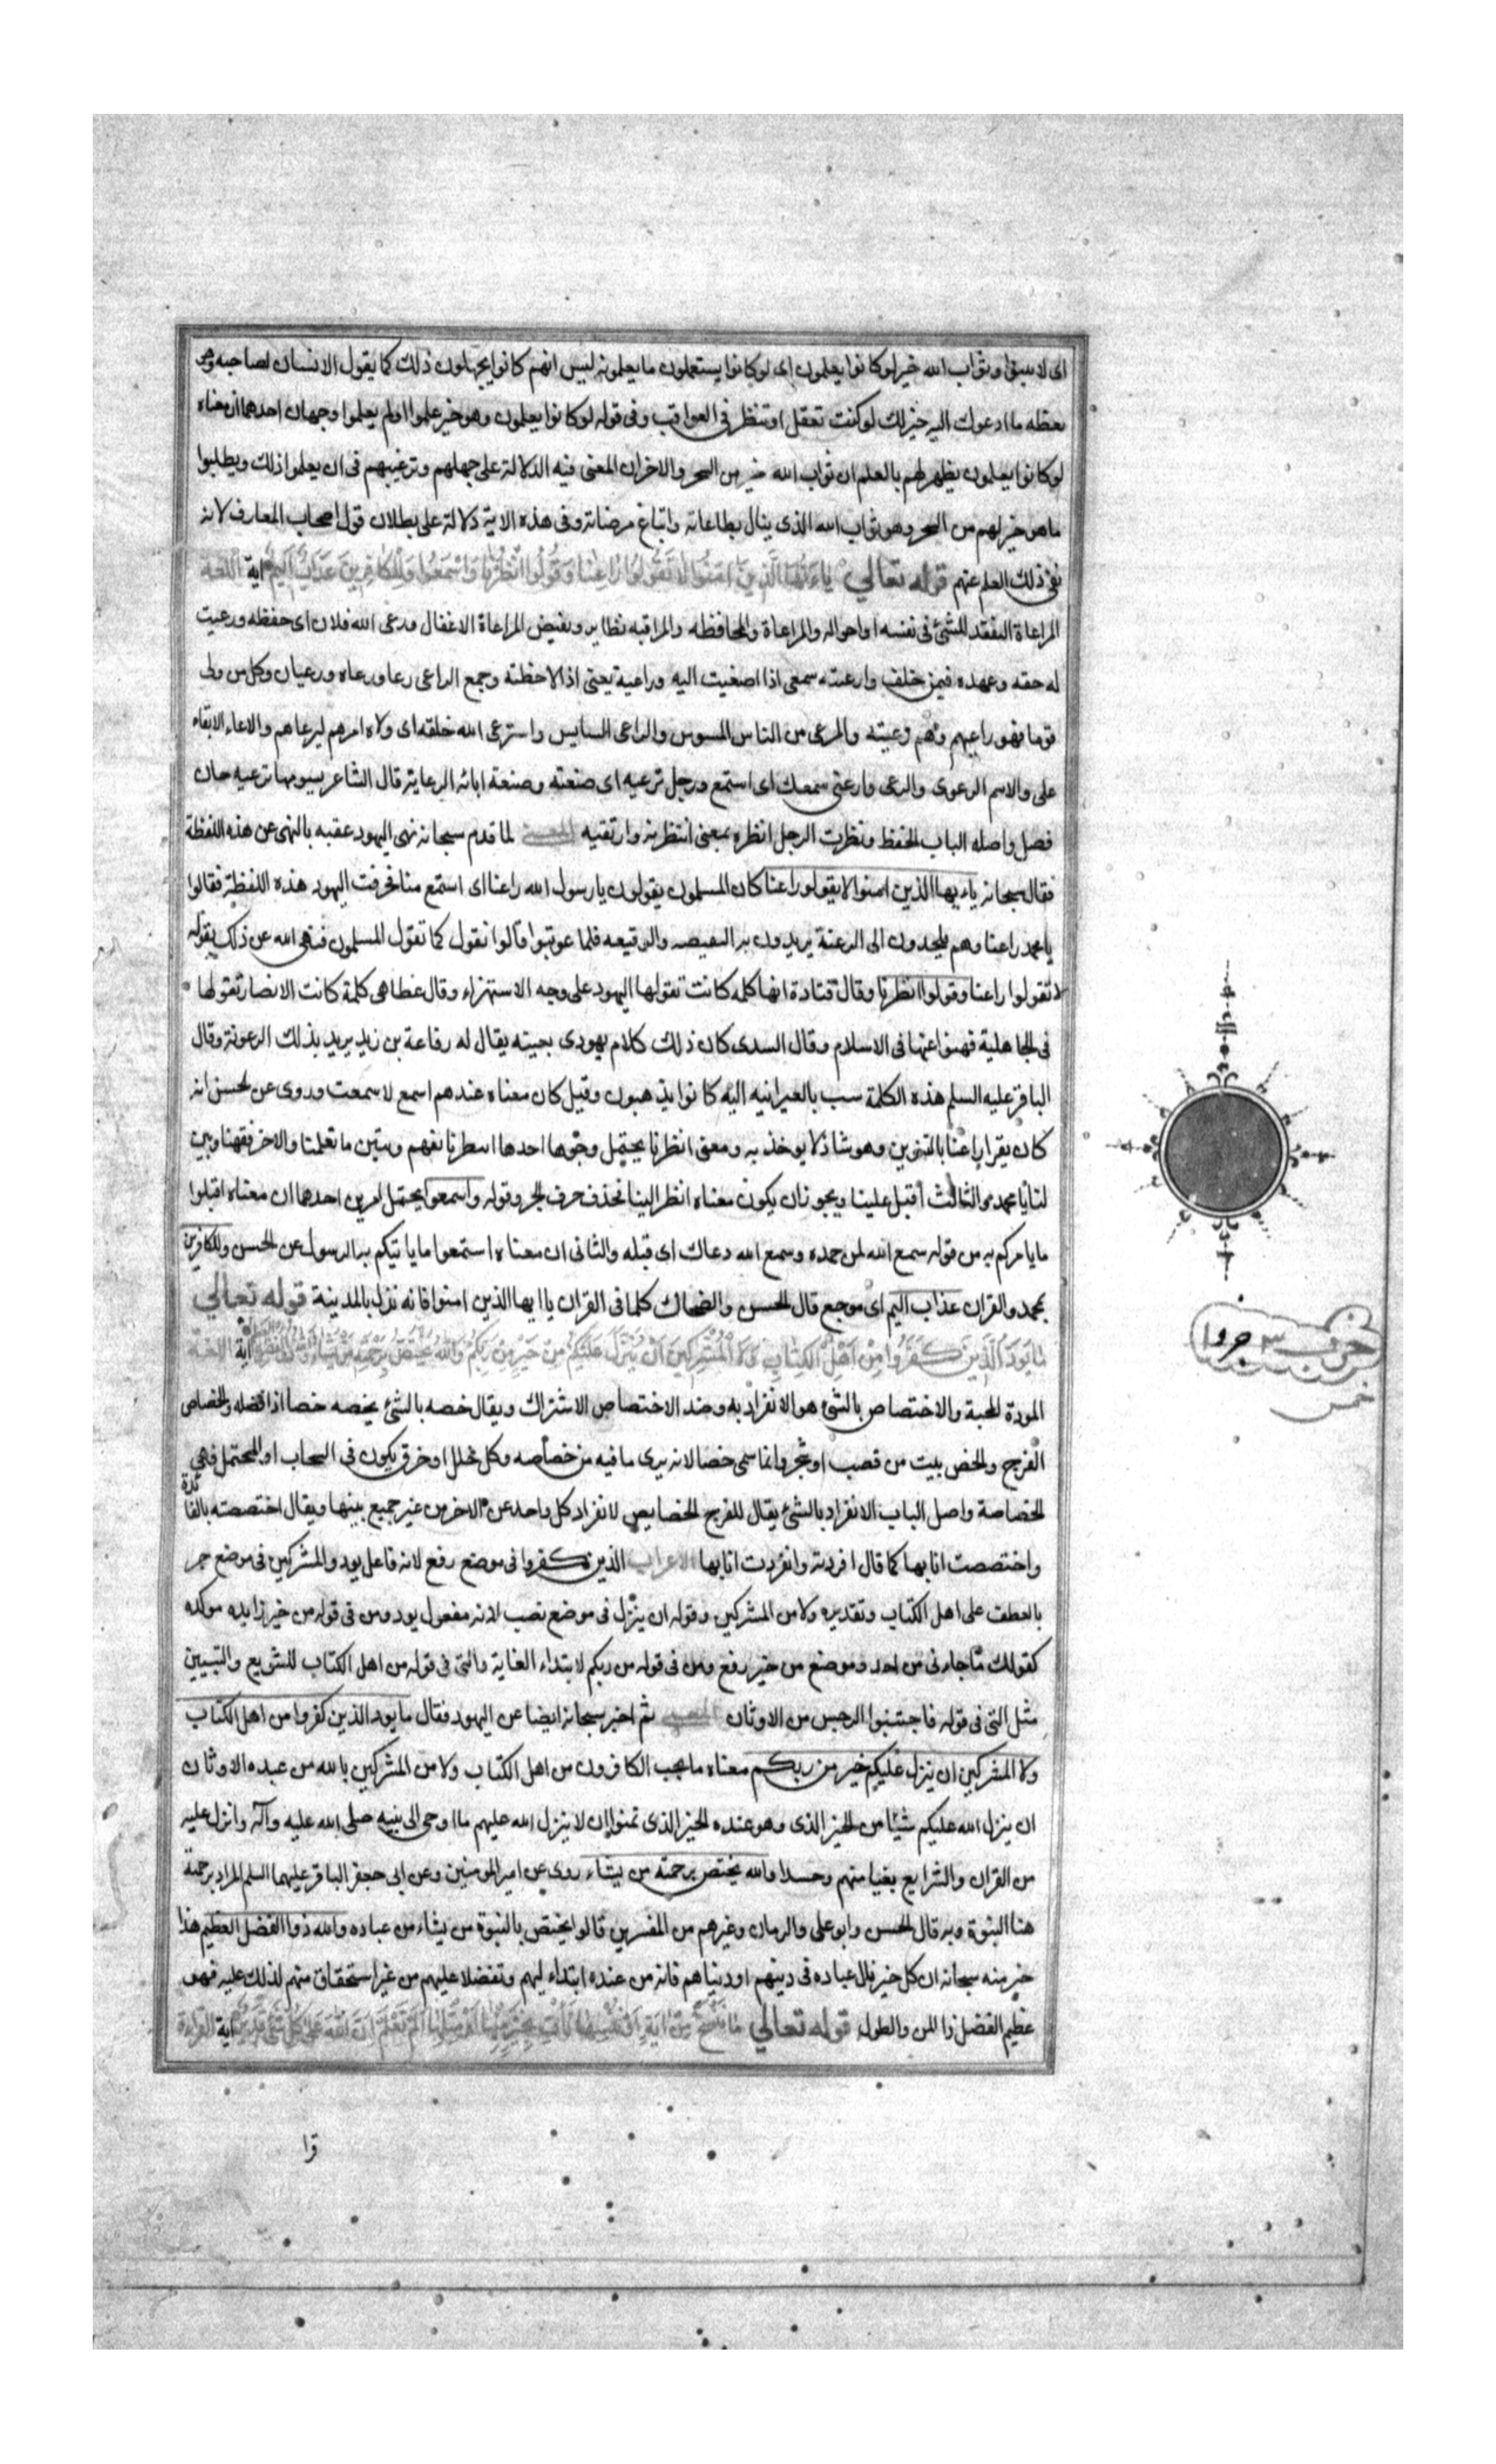 اى لاسبقوا وثواب الله خير لوكانوا يعلمون اى لوكانوا يستعملون ما يعلمونه ليس انهم كانوا يجهلون ذلك كما يقول الانسان لصاحبه وهو
يعظه ما ادعوك اليه خير لك لو كنت تعقل او تنظر فى العواقب وفى قوله لوكانوا يعلمون وهو خير علموا اولم يعلموا وجهان احدهما ان معناه
لوكانوا يعلمون يظهر لهم بالعلم ان ثواب الله خير من السحر والاخر ان المعنى فيه الدلالة على جهلهم وترغيبهم فى ان يعلموا ذلك ويطلبوا
ما هو خير لهم من السحر وهو ثواب الله الذى ينال بطاعاته واتباع مرضاته وفى هذه الاية دلالة على بطلان قول اصحاب المعارف لانه
نفى ذلك العلم عنهم قوله تعالى ياءيها الذين امنوا لا تقولوا راعنا وقولوا انظرنا واسمعوا وللكافرين عذاب اليم اية اللغة
المراعاة التفقد للشئ فى نفسه او احواله والمراعاة والمحافظه والمراقبه نظاير ونقيض المراعاة الاغفال ورعى الله فلان اى حفظه ورعيت
له حقه وعهده فيمن خلف وارعيته سمعى اذا اصغيت اليه وراعيته يعنى اذا لاحظته وجمع الراعى رعاء ورعاه ورعيان وكل من ولى
قوما فهو راعيهم وهم رعيته والمرعى من الناس المسوس والراعى السايس واسترعى الله خلقه اى ولاه امرهم ليرعاهم والارعاء الابقاء
على والاسم الرعوى والرعى وارعنى سمعك اى استمع ورجل ترعيه اى صنعته وصنعة ابائه الرعاية قال الشاعر يسومها ترعيه جان
فصل واصله الباب الحفظ ونظرت الرجل انظره بمعنى انتظرته وارتقبه المعنى لما قدم سبحانه نهى اليهود عقبه بالنهى عن هذه اللفظة
فقال سبحانه ياءيها الذين امنوا لا تقولوا راعنا كان المسلمون يقولون يا رسول الله راعنا اى استمع منا فحرفت اليهود هذه اللفظة فقالوا
يا محمد راعنا وهم يلحدون الى الرعنة يريدون به النقيصه والوقيعه فلما عوتبوا قالوا نقول كما تقول المسلمون فنهى الله عن ذلك بقوله
لا تقولوا راعنا وقولوا انظرنا وقال قتادة انها كلمه كانت تقولها اليهود على وجه الاستهزاء وقال عطا هى كلمة كانت الانصار تقولها
فى الجاهلية فنهوا عنها فى الاسلام وقال السدى كان ذلك كلام يهودى بعينه يقال له رفاعة بن زيد يريد بذلك الرعونة وقال
الباقر عليه السلم هذه الكلمة سب بالعبرانيه اليه كانوا يذهبون وقيل كان معناه عندهم اسمع لا سمعت وروى عن الحسن انه
كان يقرا راعنا بالتنوين وهو شاذ لا يوخذ به ومعنى انظرنا يحتمل وجوها احدها انتظرنا نفهم ونتبين ما تعلمنا والاخر فقهنا وبين
لنا يا محمد والثالث اقبل علينا ويجوز ان يكون معناه انظر الينا فحذف حرف الجر وقوله واسمعوا يحتمل امرين احدهما ان معناه اقبلوا
ما يامركم به من قوله سمع الله لمن حمده وسمع الله دعاك اى قبله والثانى ان معناه استمعوا ما ياتيكم به الرسول عن الحسن وللكافرين
بمحمد والقران عذاب اليم اى موجع قال الحسن والضحاك كلما فى القران يا ايها الذين امنوا فانه نزل بالمدينة قوله تعالى
ما يود الذين كفروا من اهل الكتاب ولا المشركين ان ينزل عليكم من خير من ربكم والله يختص برحمته من يشاء والله ذو الفضل العظيم اية اللغة
المودة المحبة والاختصاص بالشئ هو الانفراد به وضد الاختصاص الاشتراك ويقال خصه بالشئ يخصه خصا اذا فضله والخصاص
الفرج والخص بيت من قصب او شجر وانما سمى خصا لانه يرى ما فيه من خصاصه وكل خلل او خرق يكون فى السحاب او المحتمل فهى
الخصاصة واصل الباب الانفراد بالشئ يقال للفرج الخصايص لانفراد كل واحد عن الاخر من غير جميع بينها ويقال اختصصته بالفائدة
واختصصت انا بها كما قال افردته وانفردت انا بها الاعراب الذين كفروا فى موضع رفع لانه فاعل يود والمشركين فى موضع جر
بالعطف على اهل الكتاب وتقديره ولا من المشركين وقوله ان ينزل فى موضع نصب لانه مفعول يود ومن فى قوله من خير زايده موكده
كقولك ما جاءنى من احد وموضع من خير رفع ومن فى قوله من ربكم لابتداء الغاية والتى فى قوله من اهل الكتاب للتنويع والتبيين
مثل التى فى قوله فاجتنبوا الرجس من الاوثان المعنى ثم اخبر سبحانه ايضا عن اليهود فقال ما يود الذين كفروا من اهل الكتاب
ولا المشركين ان ينزل عليكم خير من ربكم معناه ما يحب الكافرون من اهل الكتاب ولا من المشركين بالله من عبده الاوثان
ان ينزل الله عليكم شيئا من الخير الذى وهو عنده الخير الذى تمنوا ان لا ينزل الله عليهم ما اوحى الى نبيه صلى الله عليه وآله وانزل عليه
من القران والشرايع بغيا منهم وحسدا والله يختص برحمته من يشاء روى عن امير المومنين وعن ابى جعفر الباقر عليهما السلم المراد برحمة
هنا النبوة وبه قال الحسن وابو على والرمانى وغيرهم من المفسرين قالوا يختص بالنبوة من يشاء من عباده والله ذوا الفضل العظيم هذا
خبر منه سبحانه ان كل خير نال عباده فى دينهم او دنياهم فانه من عنده ابتداء اليهم وتفضلا عليهم من غير استحقاق منهم لذلك عليه فهو
عظيم الفضل ذا المن والطول قوله تعالى ما ننسخ من اية او ننسها نات بخير منها او مثلها الم تعلم ان الله على كل شئ قدير اية القراءة
قرا